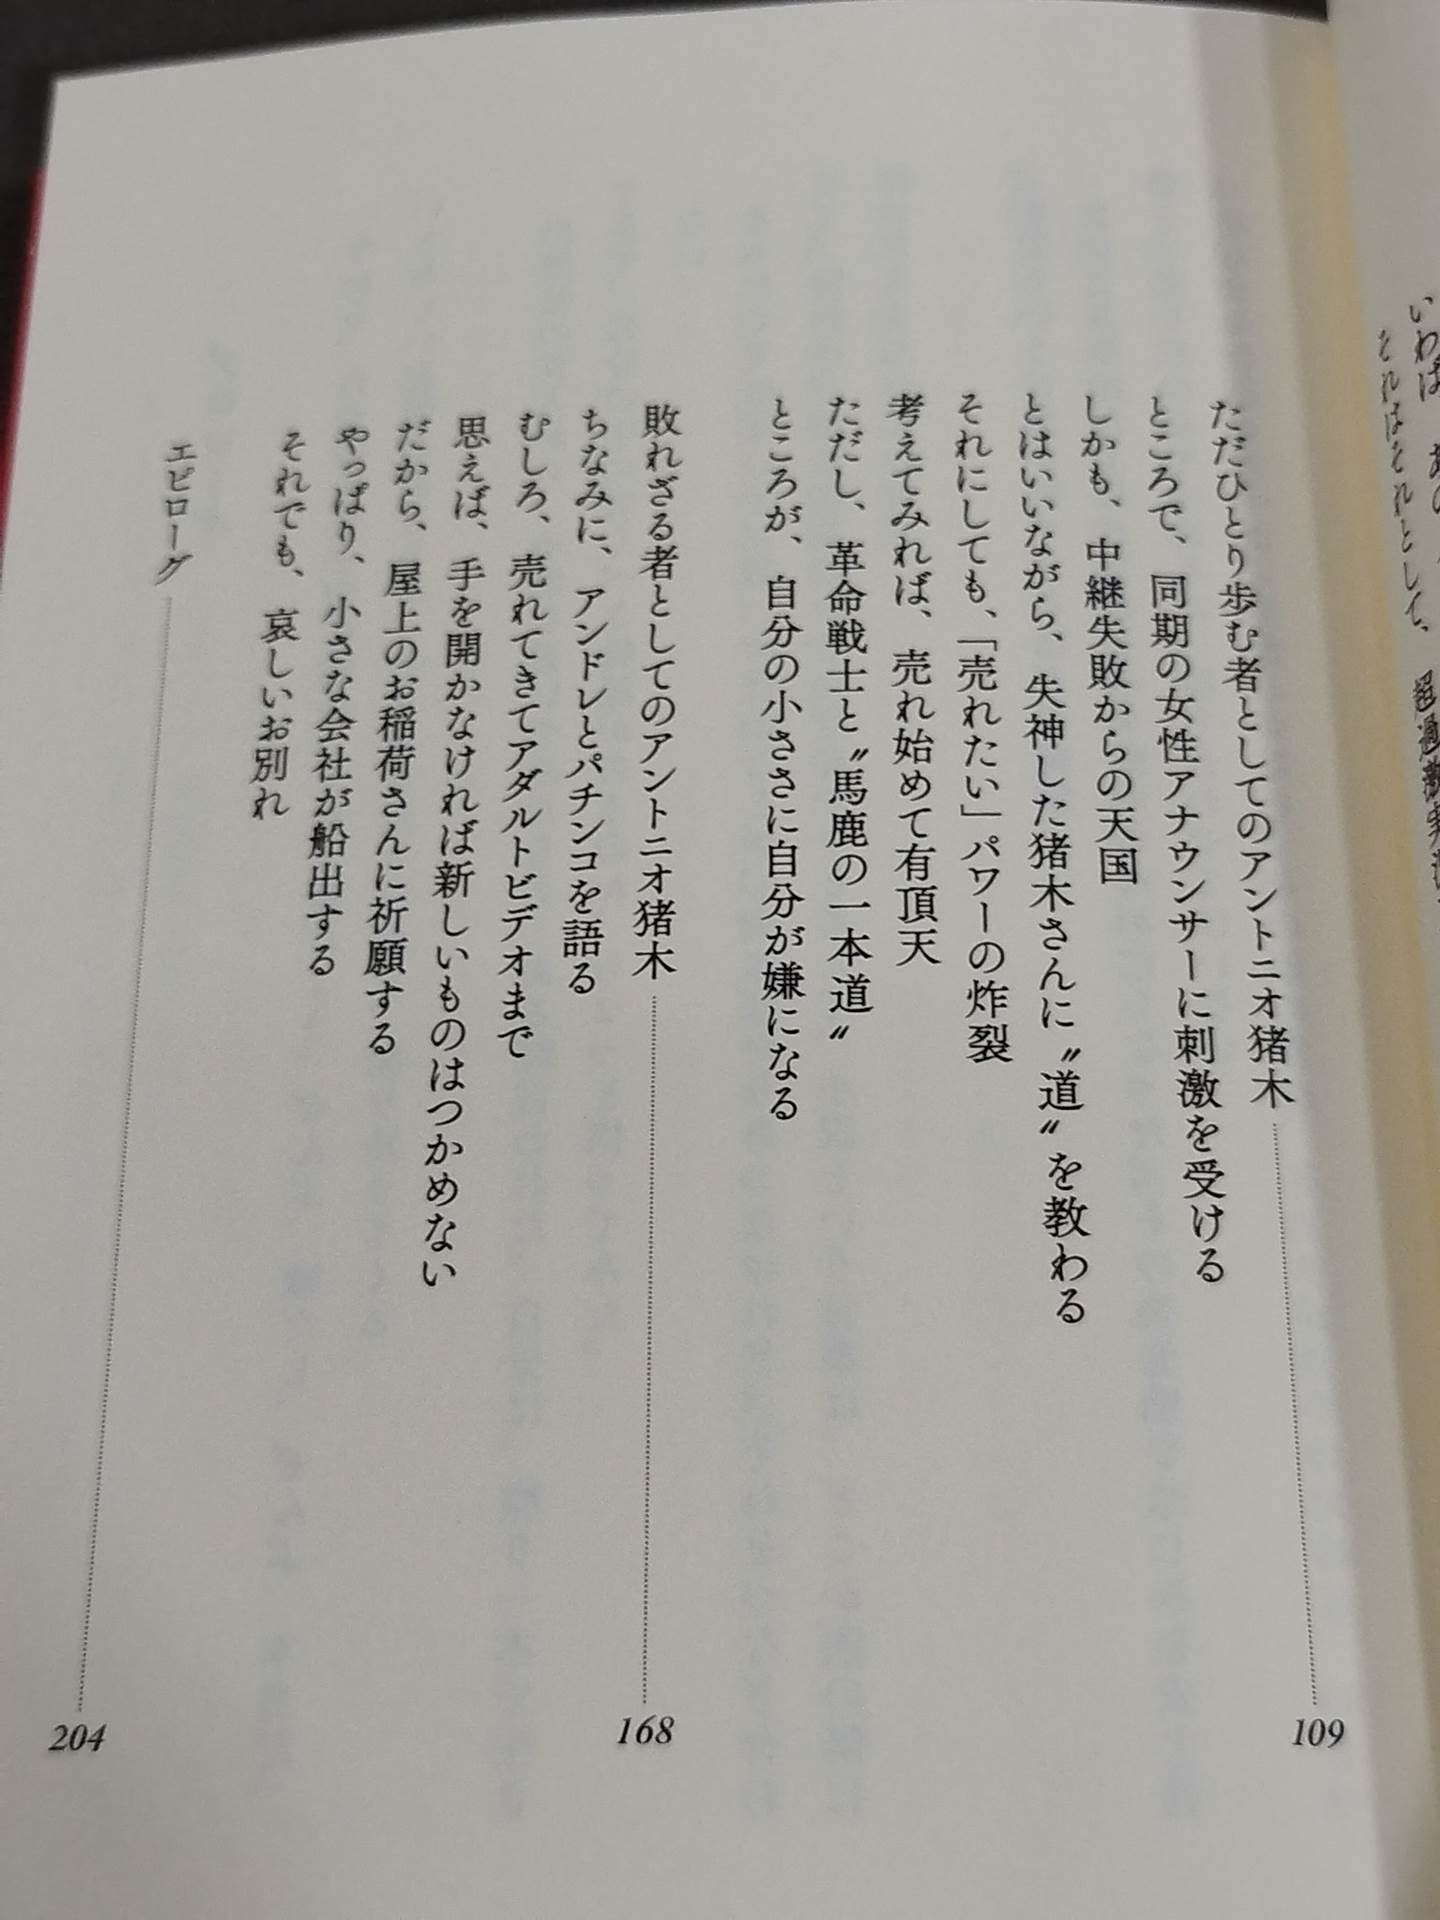 いわば
それはそれとして、
ただひとり歩む者としてのアントニオ猪木 109
ところで、同期の女性アナウンサーに刺激を受ける
しかも、中継失敗からの天国
とはいいながら、失神した猪木さんに〝道〟を教わる
それにしても、「売れたい」パワーの炸裂
考えてみれば、売れ始めて有頂天
ただし、革命戦士と〝馬鹿の一本道〟
ところが、自分の小ささに自分が嫌になる
敗れざる者としてのアントニオ猪木 168
ちなみに、アンドレとパチンコを語る
むしろ、売れてきてアダルトビデオまで
思えば、手を開かなければ新しいものはつかめない
だから、屋上のお稲荷さんに祈願する
やっぱり、小さな会社が船出する
それでも、哀しいお別れ
エピローグ 204